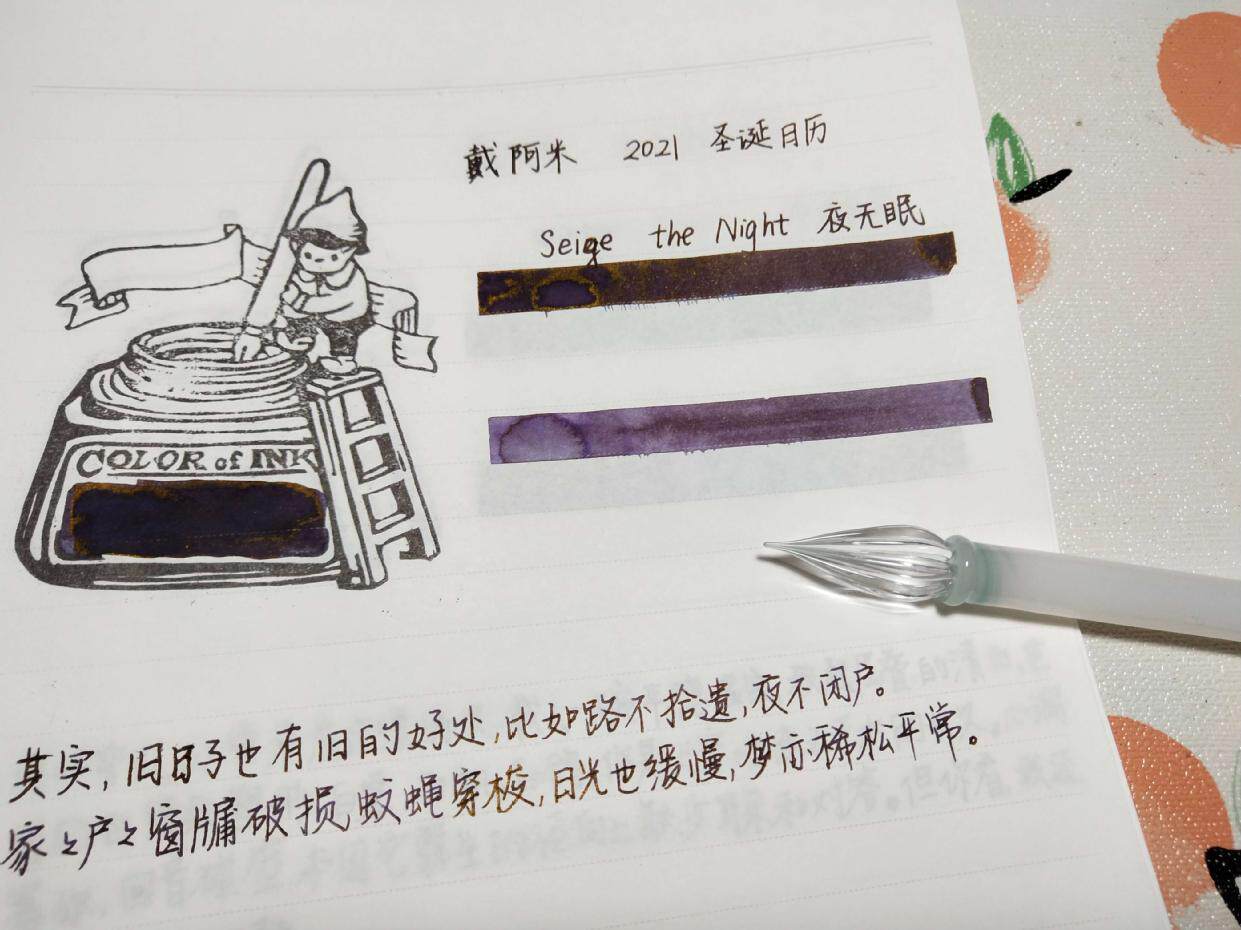 戴阿米 2021 圣诞日历
Seige the Night 夜无眠
COLOR of INK
其实,旧日子也有旧的好处,比如路不拾遗,夜不闭户。
家々户々窗牖破损,蚊蝇穿梭,日光也缓慢,梦亦稀松平常。